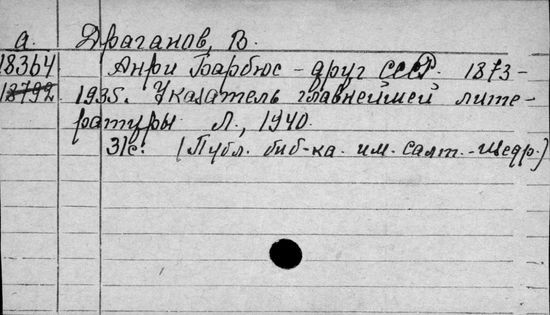 а. Драганов, В.
18364 Анри Барбюс - друг СССР. 1873-
18792 1935. Указатель главнейшей лите-
ратуры Л., 1940.
31с. (Публ. биб-ка. им. Салт.-Щедр.)